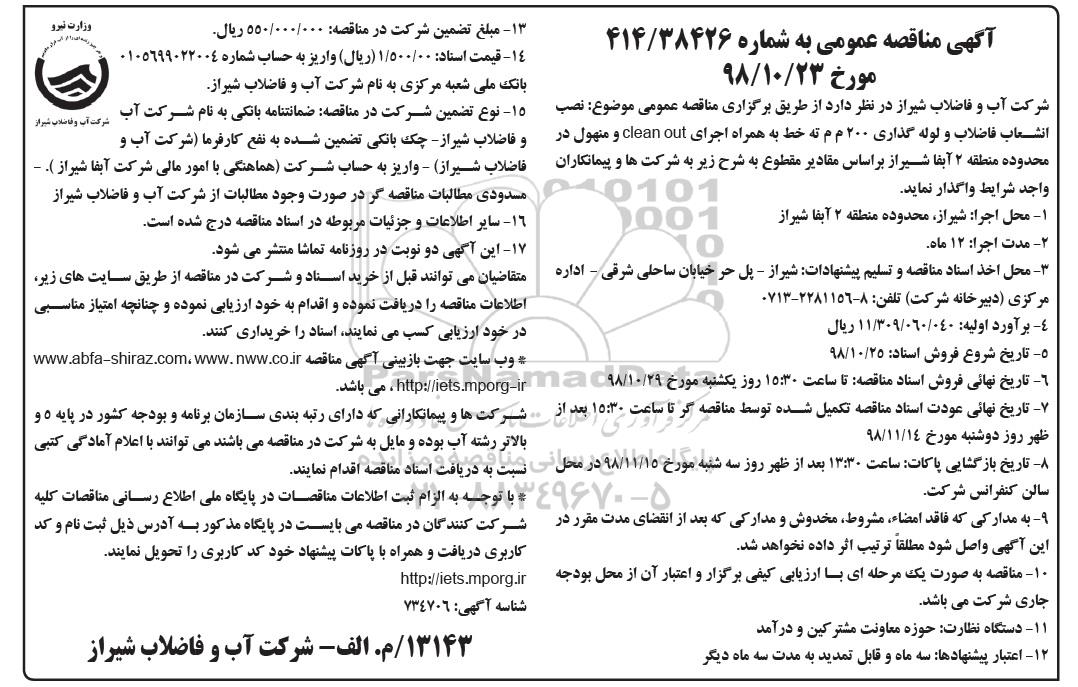 آگهی مناقصه عمومی به شماره ۴۱۴/۳۸۴۲۶
مورخ ۹۸/۱۰/۲۳
شرکت آب و فاضلاب شیراز در نظر دارد از طریق برگزاری مناقصه عمومی موضوع: نصب
انشعاب فاضلاب و لوله گذاری ۲۰۰ م م ته خط به همراه اجرای clean out و منهول در
محدوده منطقه ۲ آبفا شیراز براساس مقادیر مقطوع به شرح زیر به شرکت ها و پیمانکاران
واجد شرایط واگذار نماید.
۱- محل اجرا: شیراز، محدوده منطقه ۲ آبفا شیراز
۲- مدت اجرا: ۱۲ ماه.
۳- محل اخذ اسناد مناقصه و تسلیم پیشنهادات: شیراز - پل حر خیابان ساحلی شرقی - اداره
مرکزی (دبیرخانه شرکت) تلفن: ۸-۲۲۸۱۱۵۶-۰۷۱۳
۴- برآورد اولیه: ۱۱/۳۰۹/۰۶۰/۰۴۰ ریال
۵- تاریخ شروع فروش اسناد: ۹۸/۱۰/۲۵
۶- تاریخ نهائی فروش اسناد مناقصه: تا ساعت ۱۵:۳۰ روز یکشنبه مورخ ۹۸/۱۰/۲۹
۷- تاریخ نهائی عودت اسناد مناقصه تکمیل شده توسط مناقصه گر تا ساعت ۱۵:۳۰ بعد از
ظهر روز دوشنبه مورخ ۹۸/۱۱/۱۴
۸- تاریخ بازگشایی پاکات: ساعت ۱۳:۳۰ بعد از ظهر روز سه شنبه مورخ ۹۸/۱۱/۱۵ در محل
سالن کنفرانس شرکت.
۹- به مدارکی که فاقد امضاء، مشروط، مخدوش و مدارکی که بعد از انقضای مدت مقرر در
این آگهی واصل شود مطلقاً ترتیب اثر داده نخواهد شد.
۱۰- مناقصه به صورت یک مرحله ای با ارزیابی کیفی برگزار و اعتبار آن از محل بودجه
جاری شرکت می باشد.
۱۱- دستگاه نظارت: حوزه معاونت مشترکین و درآمد
۱۲- اعتبار پیشنهادها: سه ماه و قابل تمدید به مدت سه ماه دیگر
۱۳- مبلغ تضمین شرکت در مناقصه: ۵۵۰/۰۰۰/۰۰۰ ریال.
۱۴- قیمت اسناد: ۱/۵۰۰/۰۰ (ریال) واریز به حساب شماره ۰۱۰۵۶۹۹۰۲۲۰۰۴
بانک ملی شعبه مرکزی به نام شرکت آب و فاضلاب شیراز.
۱۵- نوع تضمین شرکت در مناقصه: ضمانتنامه بانکی به نام شرکت آب
و فاضلاب شیراز- چک بانکی تضمین شده به نفع کارفرما (شرکت آب و
فاضلاب شیراز) - واریز به حساب شرکت (هماهنگی با امور مالی شرکت آبفا شیراز ). -
مسدودی مطالبات مناقصه گر در صورت وجود مطالبات از شرکت آب و فاضلاب شیراز
۱۶- سایر اطلاعات و جزئیات مربوطه در اسناد مناقصه درج شده است.
۱۷- این آگهی دو نوبت در روزنامه تماشا منتشر می شود.
متقاضیان می توانند قبل از خرید اسناد و شرکت در مناقصه از طریق سایت های زیر،
اطلاعات مناقصه را دریافت نموده و اقدام به خود ارزیابی نموده و چنانچه امتیاز مناسبی
در خود ارزیابی کسب می نمایند، اسناد را خریداری کنند.
* وب سایت جهت بازبینی آگهی مناقصه www.abfa-shiraz.com، www. nww.co.ir
http://iets.mporg-ir ، می باشد.
شرکت ها و پیمانکارانی که دارای رتبه بندی سازمان برنامه و بودجه کشور در پایه ۵ و
بالاتر رشته آب بوده و مایل به شرکت در مناقصه می باشند می توانند با اعلام آمادگی کتبی
نسبت به دریافت اسناد مناقصه اقدام نمایند.
* با توجه به الزام ثبت اطلاعات مناقصات در پایگاه ملی اطلاع رسانی مناقصات کلیه
شرکت کنندگان در مناقصه می بایست در پایگاه مذکور به آدرس ذیل ثبت نام و کد
کاربری دریافت و همراه با پاکات پیشنهاد خود کد کاربری را تحویل نمایند.
http://iets.mporg.ir
شناسه آگهی: ۷۳۴۷۰۶
۱۳۱۴۳/م. الف- شرکت آب و فاضلاب شیراز
وزارت نیرو
شرکت آب و فاضلاب شیراز
ParsNamadData
پایگاه اطلاع رسانی مناقصه و مزایده
۰۲۱-۸۸۳۴۹۶۷۰-۵